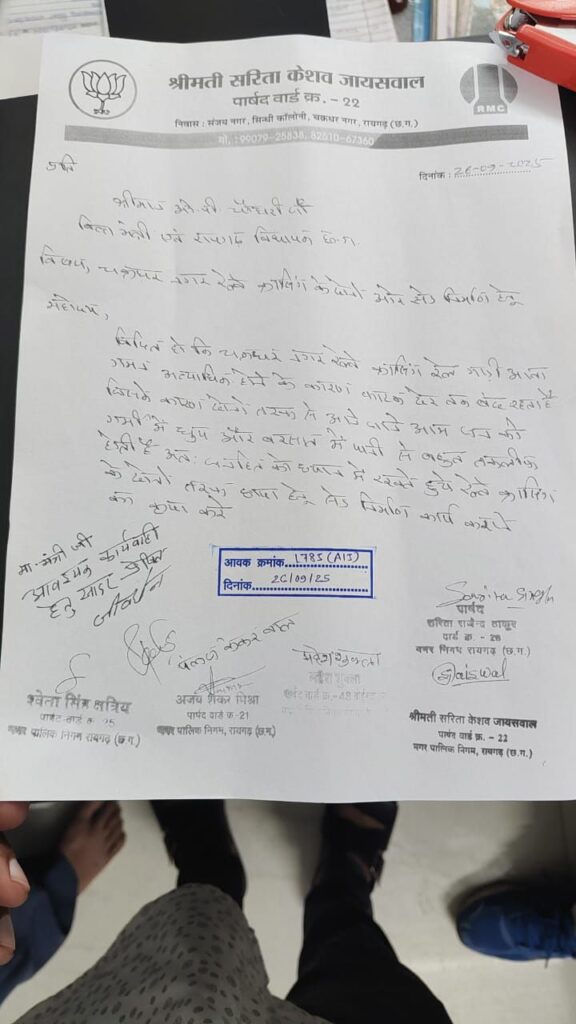 श्रीमती सरिता केशव जायसवाल
पार्षद वार्ड क्र. - 22
निवास : संजय नगर, सिन्धी कॉलोनी, चक्रधर नगर, रायगढ़ (छ.ग.)
मो. : 99079-25838, 82510-67360
RMC
दिनांक : 26-09-2025
प्रति
श्रीमान ओ. पी. चौधरी जी
वित्त मंत्री एवं रायगढ़ विधायक छ.ग.
विषय, चक्रधर नगर रेल्वे क्रासिंग के दोनो ओर शेड निर्माण हेतु
महोदय,
विदित हो कि चक्रधर नगर रेल्वे क्रासिंग रेल गाड़ी आवा
गमन अत्याधिक होने के कारण फाटक देर तक बंद रहता है
जिसके कारण दोनो तरफ से आने जाने आम जन को
गर्मी में धुप और बरसात में पानी से बहुत तकलीफ
होती है अतः जनहित को ध्यान में रखते हुये रेल्वे क्रासिंग
के दोनो तरफ छाया हेतु शेड निर्माण कार्य कराने
का कृपा करे
मा. मंत्री जी
आवश्यक कार्यवाही
हेतु सादर
आवक क्रमांक 1783 (A13)
दिनांक 26/09/25
पार्षद
सरिता राजेन्द्र ठाकुर
पार्षद वार्ड क्र. - 26
नगर निगम रायगढ़ (छ.ग.)
Jaiswal
श्रीमती सरिता केशव जायसवाल
पार्षद वार्ड क्र. - 22
नगर पालिक निगम, रायगढ़ (छ.ग.)
श्वेता सिंग क्षत्रिय
पार्षद वार्ड क्र. 25
नगर पालिक निगम रायगढ़ (छ.ग.)
अजय शंकर मिश्रा
पार्षद वार्ड क्र.-21
नगर पालिक निगम, रायगढ़ (छ.ग.)
पार्षद वार्ड क्र.-48